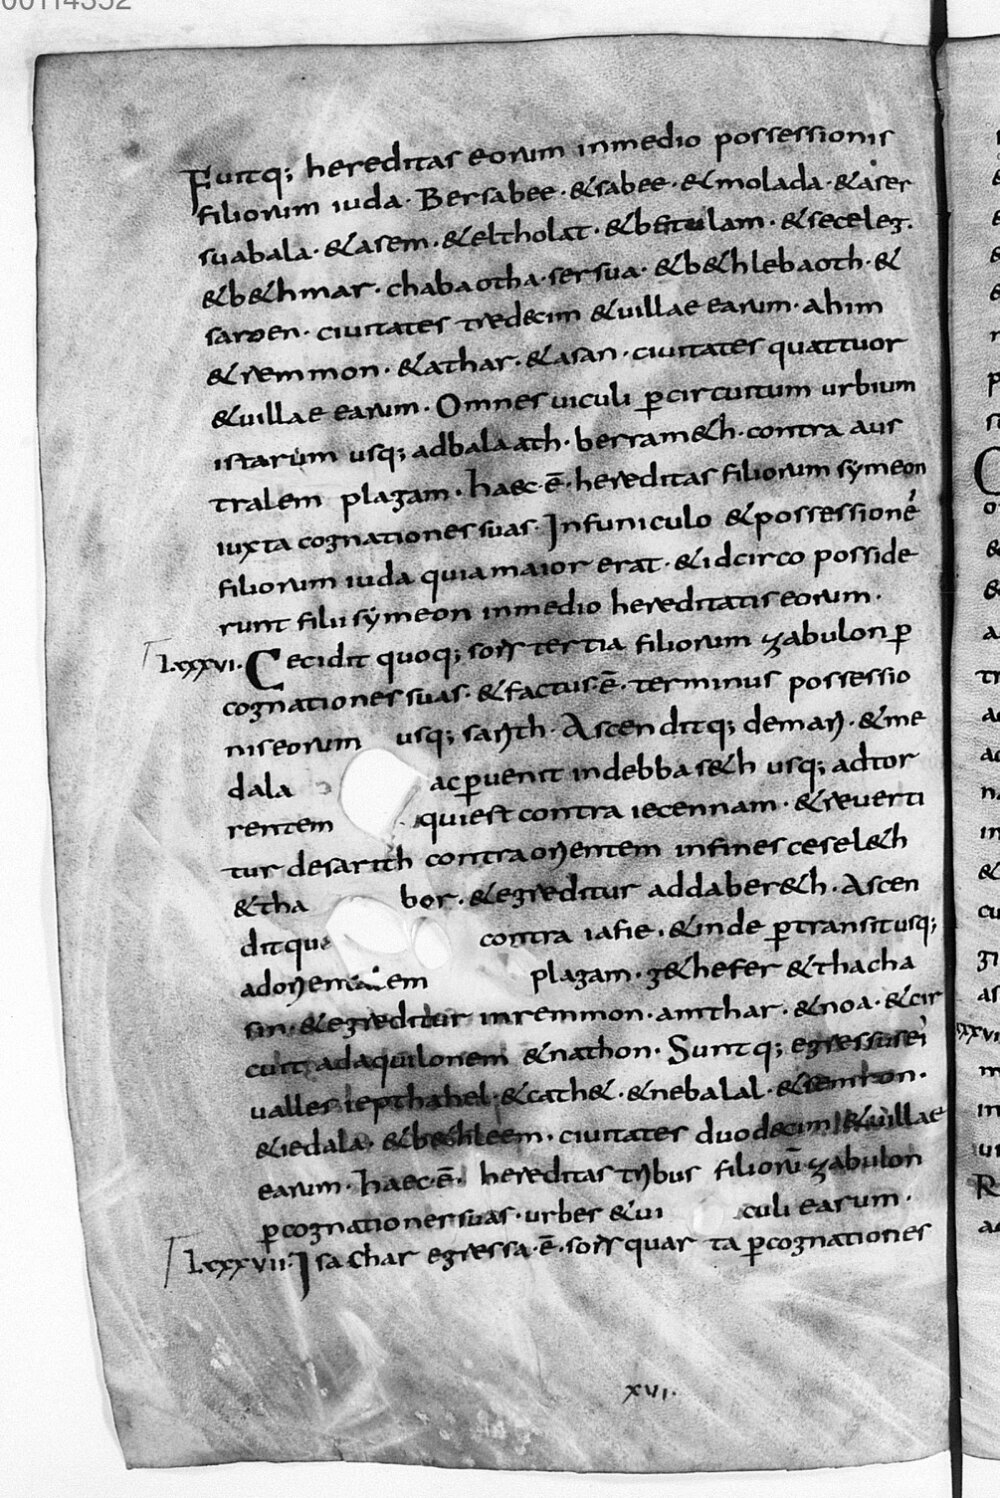 00114352
Fuitq; hereditas eorum inmedio possessionis
filiorum iuda. Bersabee. & sabee. & molada. & aser
suabala. & asem. & eltholat. & betulam. & seceleg.
& b&hmar. chabaotha. sersua. & b&hlebaoth. &
saroen. ciuitates tredecim & uillae earum. ahim
& remmon. & athar. & asan. ciuitates quattuor
& uillae earum. Omnes uiculi p circuitum urbium
istarum usq; adbalaath. berram&h. contra aus
tralem plagam. haec. ē. hereditas filiorum symeon
iuxta cognationes suas. Infuniculo & possessione
filiorum iuda quia maior erat. & idcirco posside
runt filii symeon inmedio hereditatis eorum.
LXXXVI. Cecidit quoq; sors tertia filiorum zabulon p
cognationes suas. & factus. ē. terminus possessio
nis eorum usq; sarith. Ascenditq; demari. & me
dala ac puenit indebbas&h usq; adtor
rentem qui est contra iecennam. & reuerti
tur desarith contra orientem infines cesel&h
& tha bor. & egreditur addaber&h. Ascen
ditque contra iafie. & inde ptransit usq;
adorientalem plagam. g&hefer & thacha
sin. & egreditur inremmon. amthar. & noa. & cir
cuit adaquilonem & nathon. Suntq; egressus ei
ualles iepthahel. & cath&. & nebalal. & semron.
& iedala. & b&hleem. ciuitates duodecim & uillae
earum. haec. ē. hereditas tribus filiorū zabulon
p cognationes suas. urbes & ui culi earum.
LXXXVII. Isachar egressa. ē. sors quar ta p cognationes
XVI.